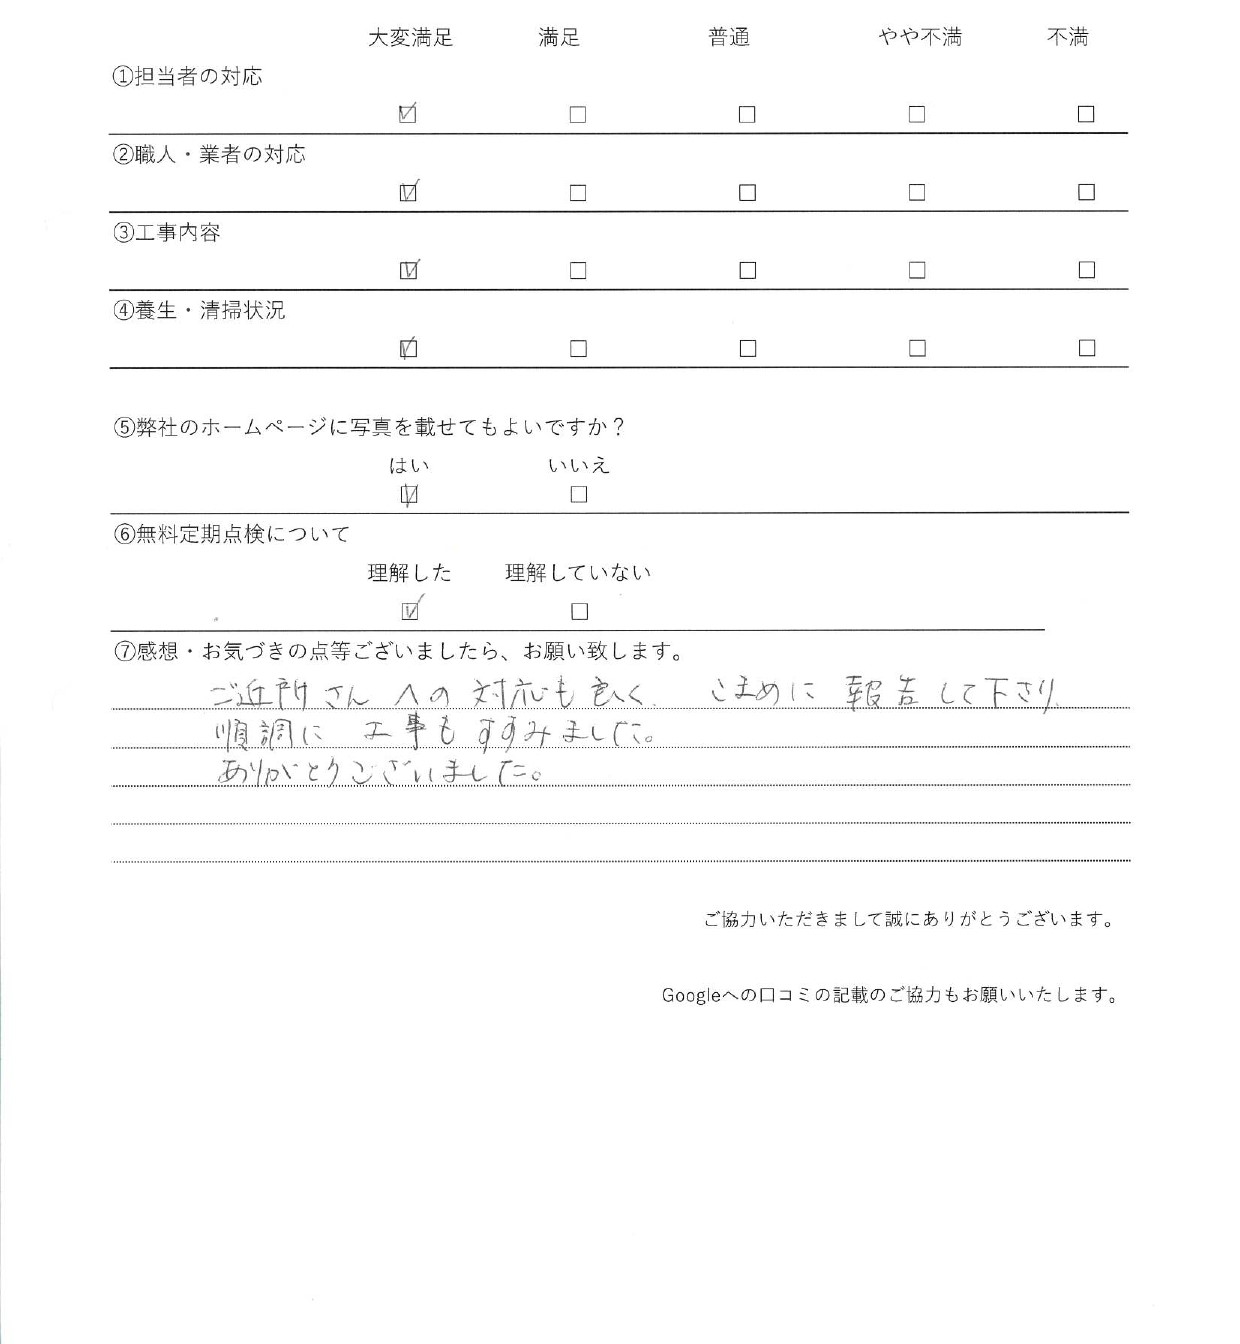 大変満足 満足 普通 やや不満 不満
①担当者の対応
☑ ☐ ☐ ☐ ☐
②職人・業者の対応
☑ ☐ ☐ ☐ ☐
③工事内容
☑ ☐ ☐ ☐ ☐
④養生・清掃状況
☑ ☐ ☐ ☐ ☐
⑤弊社のホームページに写真を載せてもよいですか？
はい いいえ
☑ ☐
⑥無料定期点検について
理解した 理解していない
☑ ☐
⑦感想・お気づきの点等ございましたら、お願い致します。
ご近所さんへの対応も良く、こまめに報告して下さり、
順調に工事もすすみました。
ありがとうございました。
ご協力いただきまして誠にありがとうございます。
Googleへの口コミの記載のご協力もお願いいたします。